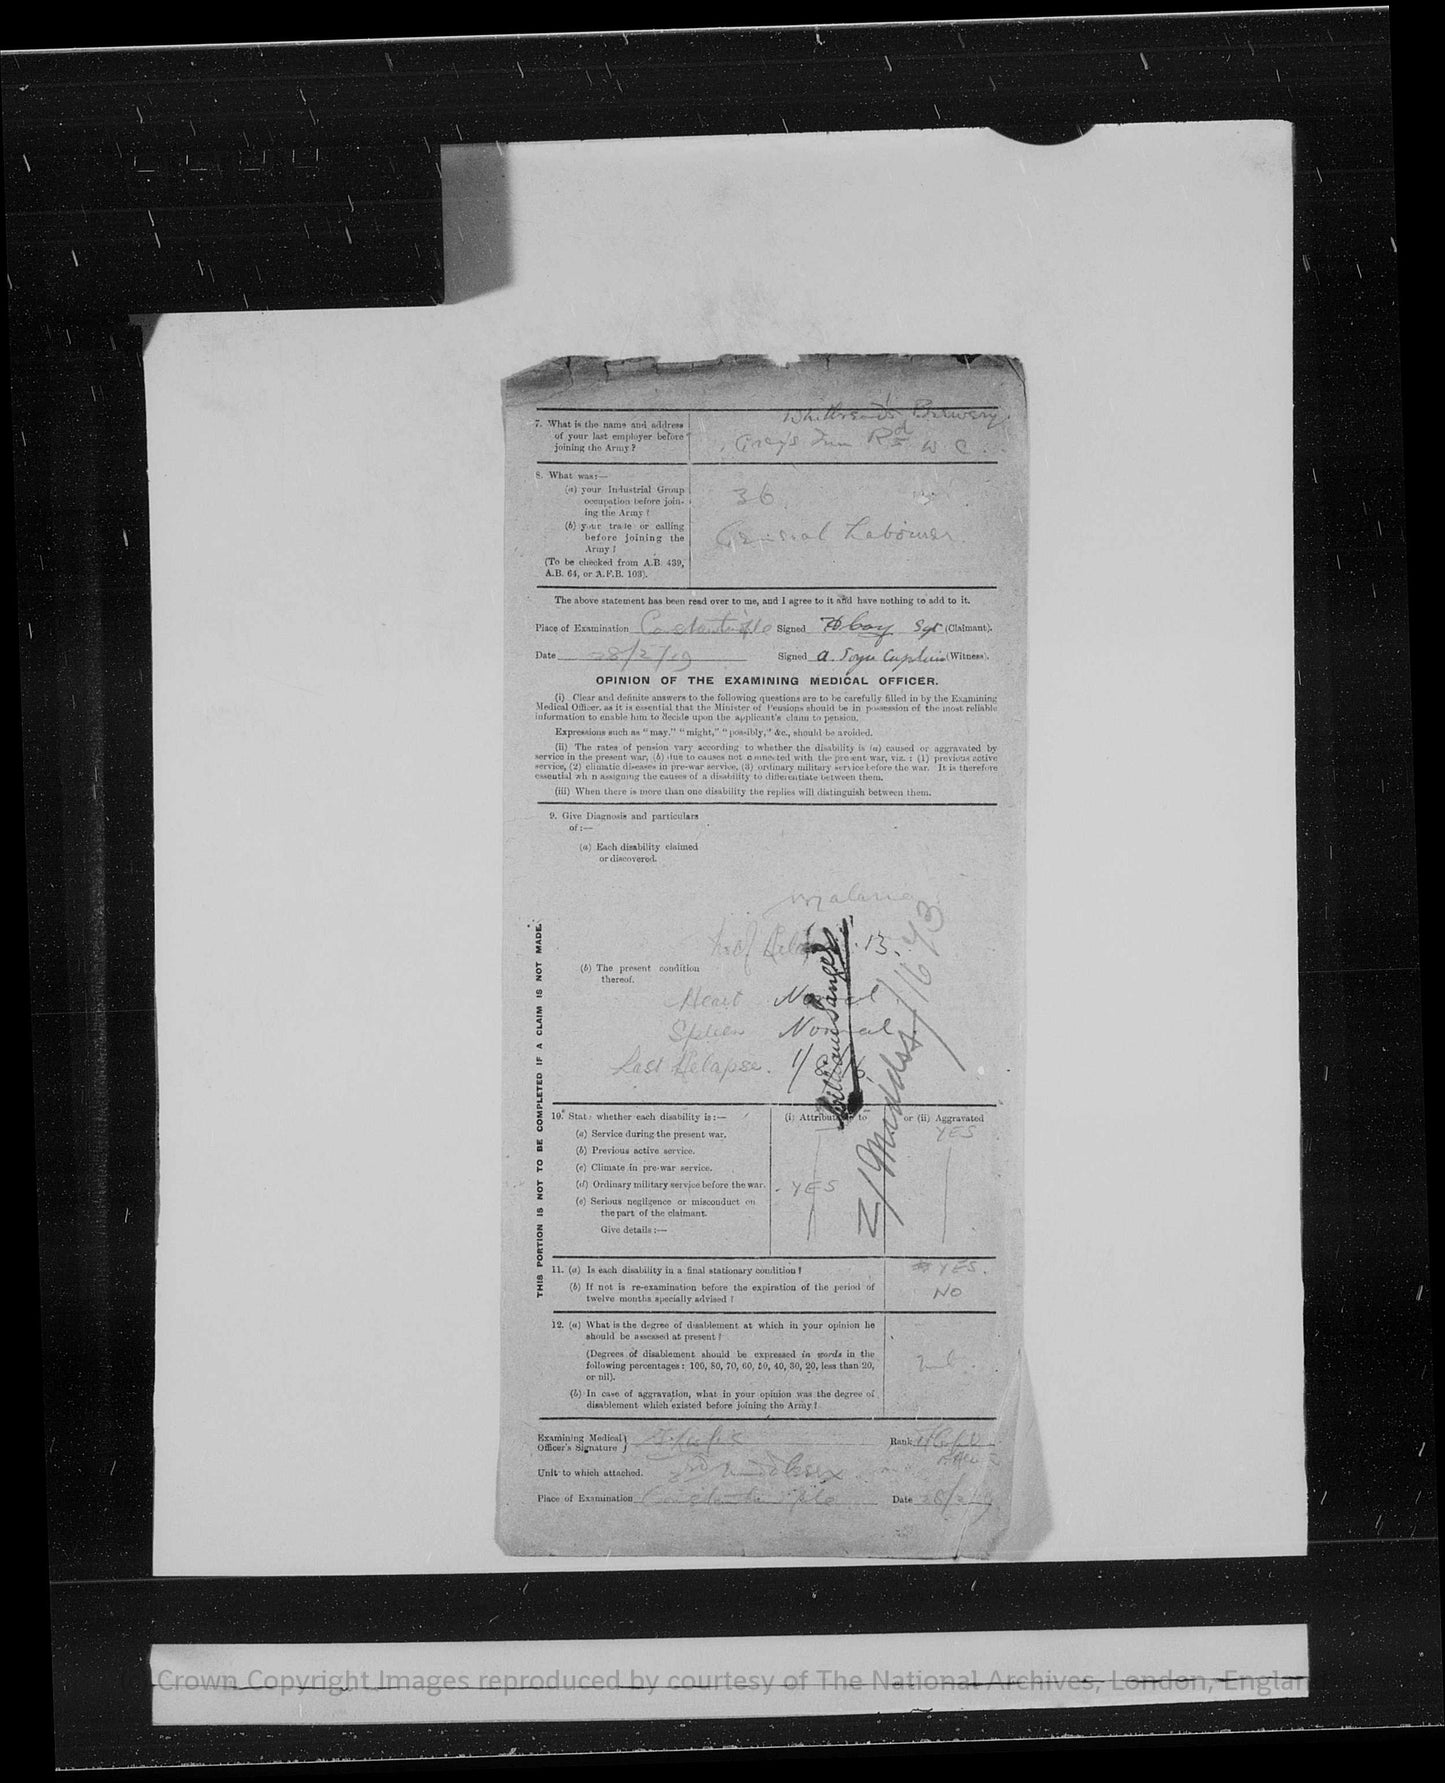 Whitbreads Brewery
7. What is the name and address
of your last employer before
joining the Army?
Grays Inn Rd W C.
8. What was:—
(a) your Industrial Group
occupation before join-
ing the Army?
36
(b) your trade or calling
before joining the
Army?
General Labourer.
(To be checked from A.B. 439,
A.B. 64, or A.F.B. 103).
The above statement has been read over to me, and I agree to it and have nothing to add to it.
Place of Examination Constantinople Signed Sgt (Claimant).
Date 28/2/19 Signed A. Captain (Witness).
OPINION OF THE EXAMINING MEDICAL OFFICER.
(i) Clear and definite answers to the following questions are to be carefully filled in by the Examining
Medical Officer, as it is essential that the Minister of Pensions should be in possession of the most reliable
information to enable him to decide upon the applicant's claim to pension.
Expressions such as "may," "might," "possibly," &c., should be avoided.
(ii) The rates of pension vary according to whether the disability is (a) caused or aggravated by
service in the present war, (b) due to causes not connected with the present war, viz.: (1) previous active
service, (2) climatic diseases in pre-war service, (3) ordinary military service before the war. It is therefore
essential when assigning the causes of a disability to differentiate between them.
(iii) When there is more than one disability the replies will distinguish between them.
9. Give Diagnosis and particulars
of:—
(a) Each disability claimed
or discovered.
Malaria
13.
(b) The present condition
thereof.
Heart Normal
Spleen Normal
Last Relapse.
Z/Middss/1643
THIS PORTION IS NOT TO BE COMPLETED IF A CLAIM IS NOT MADE.
10. State whether each disability is:— (i) Attributable to or (ii) Aggravated
(a) Service during the present war. YES
(b) Previous active service.
(c) Climate in pre-war service.
(d) Ordinary military service before the war. YES
(e) Serious negligence or misconduct on
the part of the claimant.
Give details:—
11. (a) Is each disability in a final stationary condition? YES.
(b) If not is re-examination before the expiration of the period of
twelve months specially advised? NO
12. (a) What is the degree of disablement at which in your opinion he
should be assessed at present?
(Degrees of disablement should be expressed in words in the
following percentages: 100, 80, 70, 60, 50, 40, 30, 20, less than 20,
or nil).
(b) In case of aggravation, what in your opinion was the degree of
disablement which existed before joining the Army?
Examining Medical
Officer's Signature Rank
Unit to which attached. 3rd Middlesex
Place of Examination Constantinople Date 28/2/19
Crown Copyright Images reproduced by courtesy of The National Archives, London, England